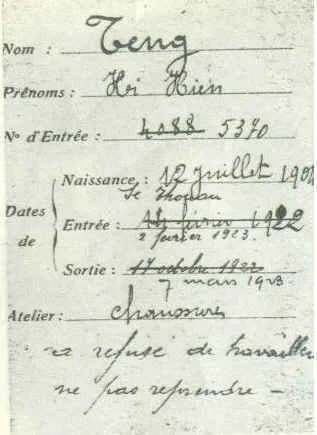 Nom : Teng
Prénoms : Hi Hien
N° d'Entrée : 4088 5370
Naissance : 12 Juillet 190
Se Thouan
Dates de
Entrée : 14 février 1922
2 février 1923.
Sortie : 17 octobre 1922
7 mars 1923
Atelier : Chaussures
a refusé de travailler
ne pas reprendre –